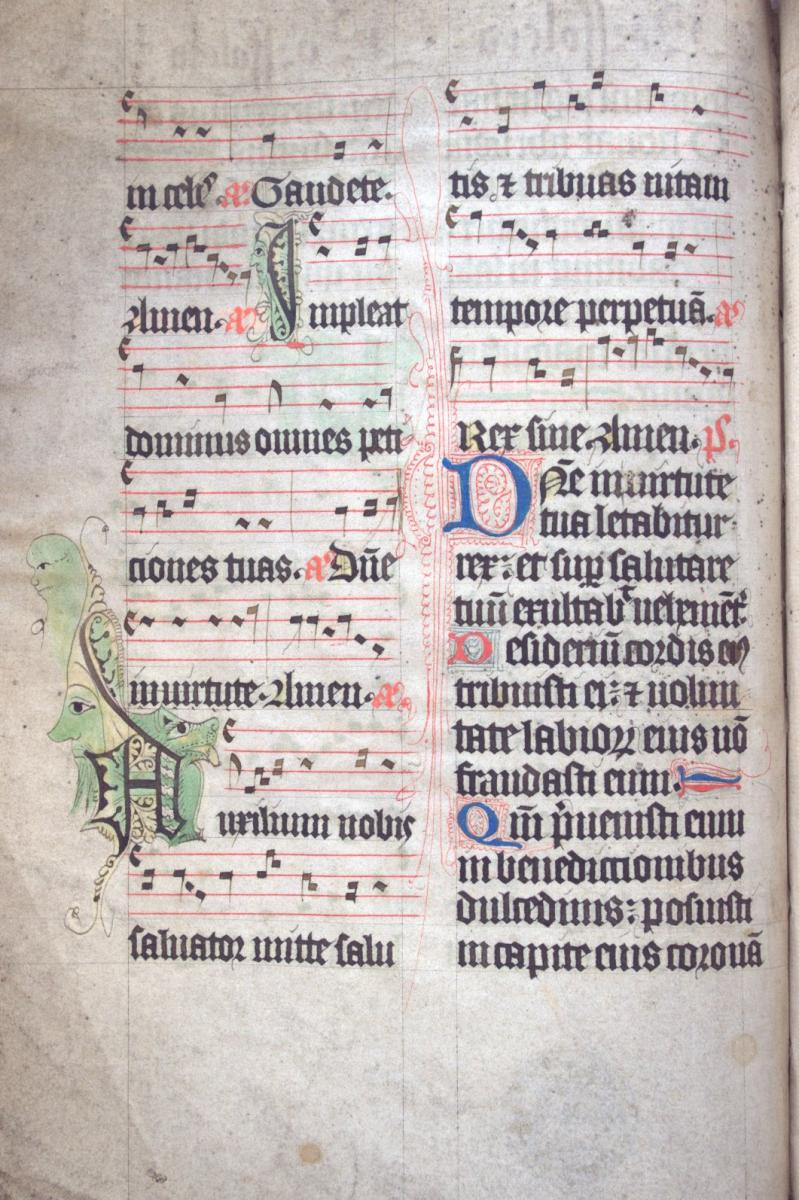 in cel᷒ aͣ Gaudete.
Amen. aͣ Impleat
dominus omnes peti
ciones tuas. aͣ Dn̄e
in uirtute. Amen. aͣ
Auxilium nobis
saluator mitte salu
tis ⁊ tribuas uitam
tempore perpetuā. aͣ
Rex sine. Amen. ps.
Dn̄e in uirtute
tua letabitur
rex: et suꝑ salutare
tuū exultabͭ uehemēt᷑
Desideriū cordis eiꝰ
tribuisti ei: ⁊ uolun
tate labioꝝ eius nō
fraudasti eum.
Qm̄ p̄uenisti eum
in benedictionibus
dulcedinis: posuisti
in capite eius coronā